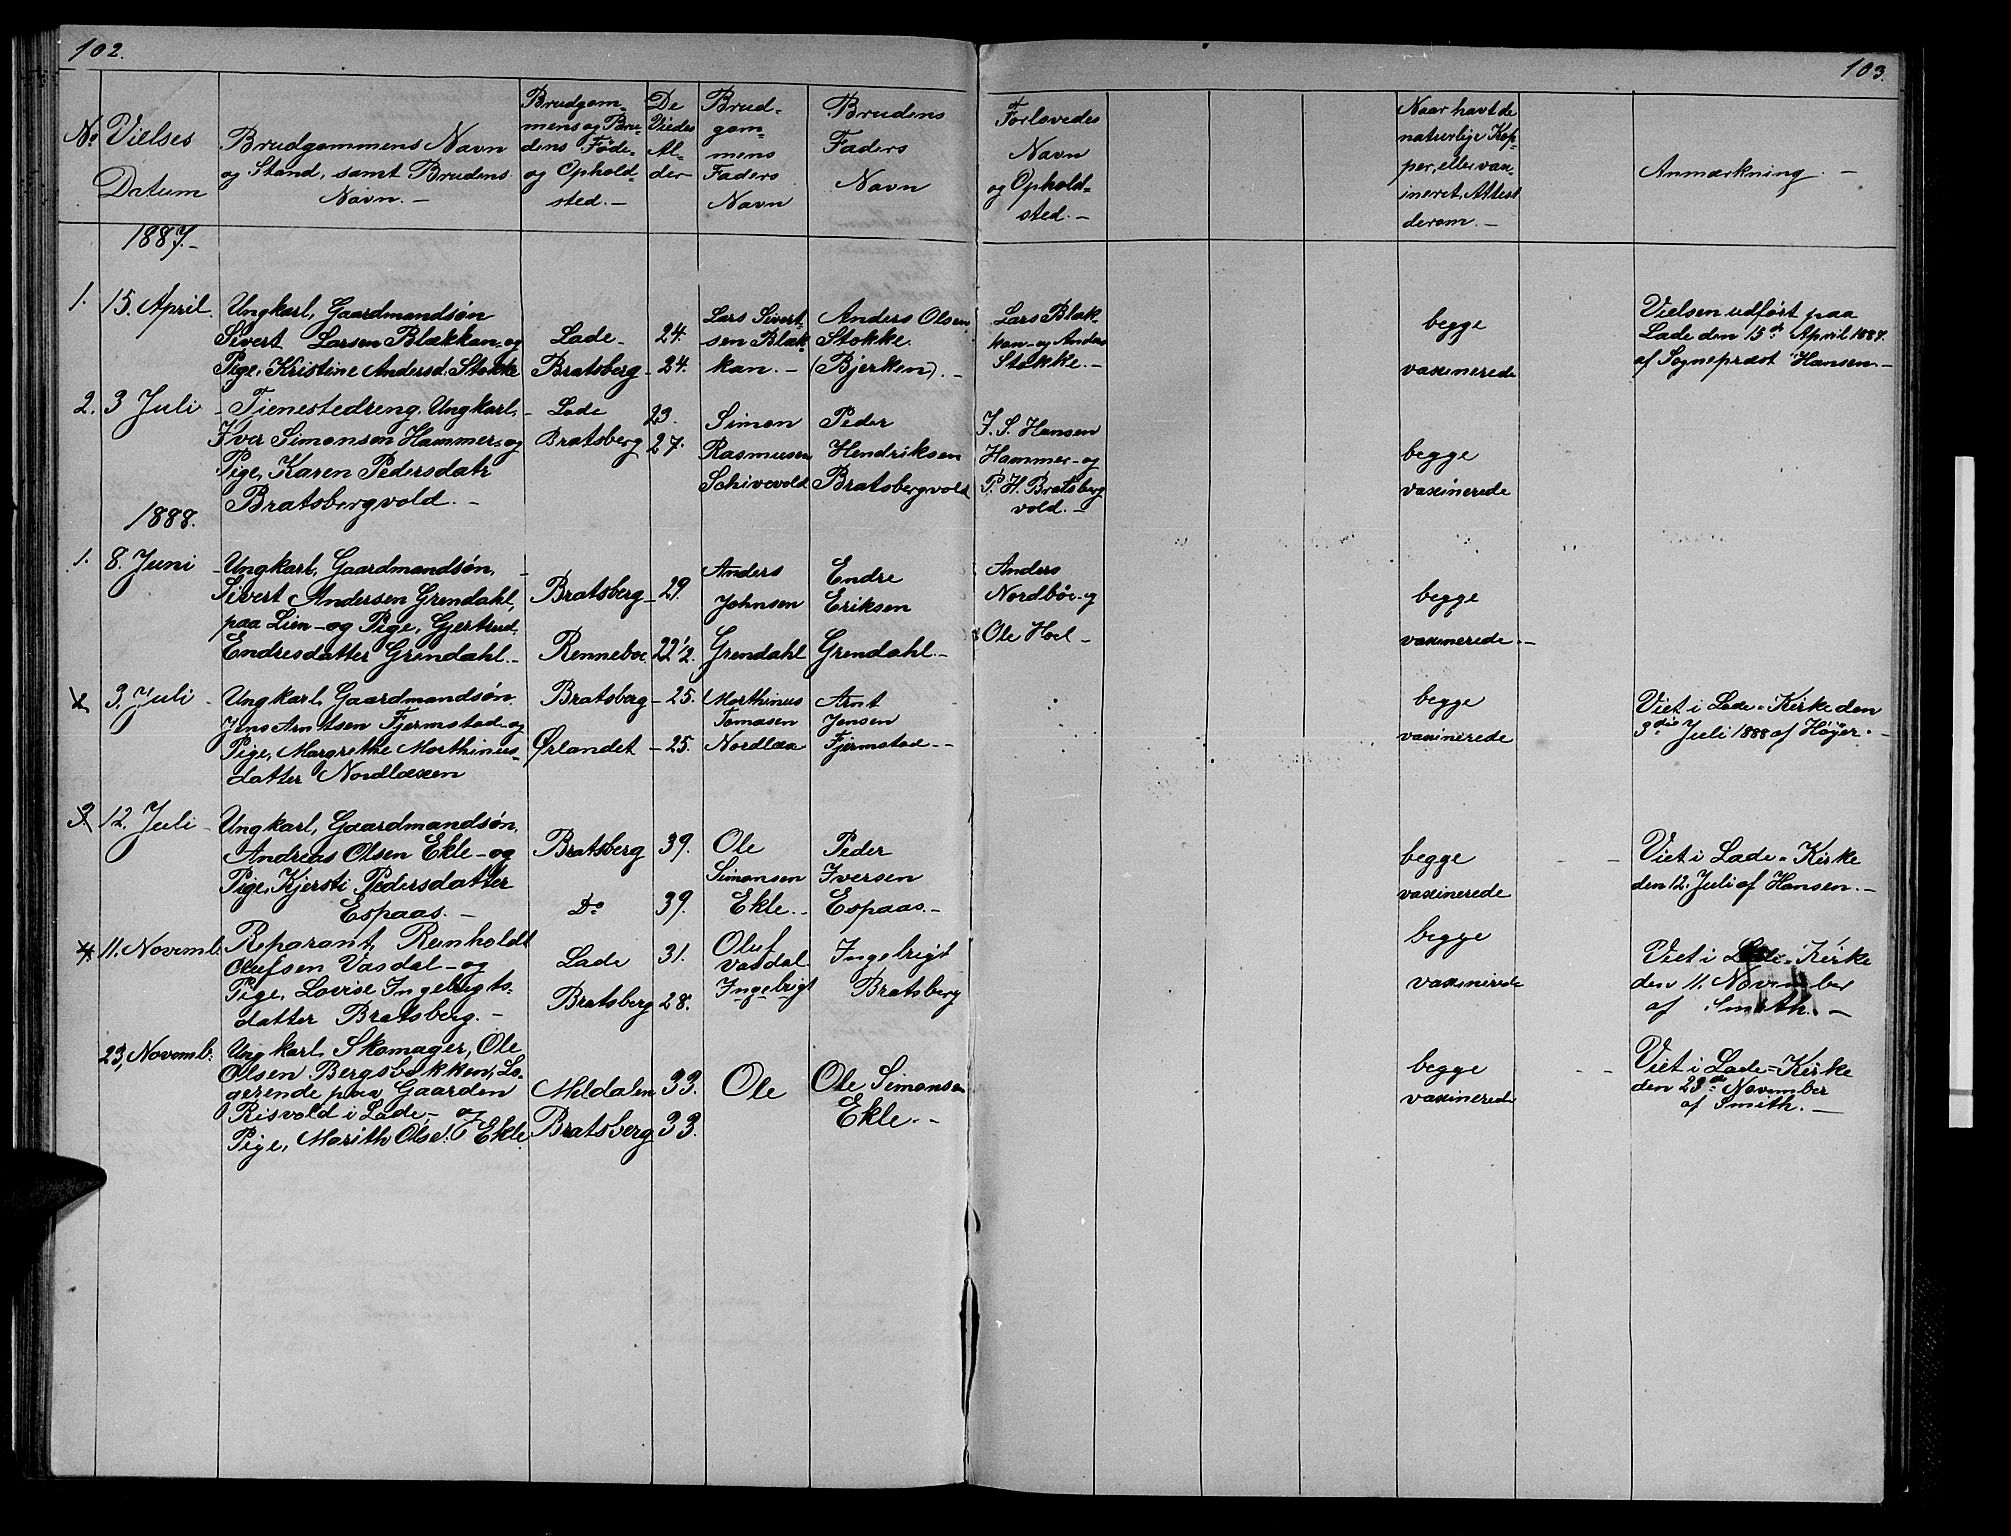 102.
103.
No. Vielses Datum
Brudgommens Navn og Stand, samt Brudens Navn. -
Brudgom= mens og Bru= dens Føde= og Ophold= sted. -
De Viedes Al= der
Brud= gom= mens Faders Navn
Brudens Faders Navn
Forlovedes Navn og Ophold= sted. -
Naar havt de naturlige Kop= per, eller vax= ineret, Attest derom. -
Anmærkning. -
1887. -
1. 15. April.
Ungkarl, Gaardmandsøn
Sivert Larsen Blækkan - og
Pige, Kristine Andersd. Stokke
Lade - 24.
Bratsberg - 24.
Lars Sivert= sen Blæk= kan. -
Anders Olsen Stokke. (Bjerken). -
Lars Blæk= kan - og Anders Stokke. -
begge vaxinerede
Vielsen udført paa
Lade den 15de April 1887.
af Sognepræst Hansen. -
2. 3 Juli -
Tienestedreng, Ungkarl, -
Iver Simonsen Hammer - og
Pige, Karen Pedersdatr
Bratsbergvold. -
Lade 23.
Bratsberg 27.
Simon Rasmussen Schivevold
Peder Hendriksen Bratsbergvold
I. S. Hansen
Hammer - og
P. H. Bratsberg
vold. -
begge vaxinerede
1888.
1. 8. Juni -
Ungkarl, Gaardmandsøn, -
Sivert Andersen Grendahl,
paa Lien - og Pige, Gjertrud,
Endresdatter Grendahl. -
Bratsberg - 29.
Renneboe 22 1/2.
Anders Johnsen Grendahl
Endre Eriksen Grendahl. -
Anders
Nordbøe - og
Ole Hoel -
begge vaxinerede. -
2. 3. Juli -
Ungkarl, Gaardmandsøn
Jens Arntsen Fjermstad - og
Pige, Margrethe Morthinus=
datter Nordlaxen
Bratsberg - 25.
Ørlandet - 25.
Morthinus Tomasen Nordlax
Arnt Jensen Fjermstad. -
begge vaxinerede
Viet i Lade = Kirke den
3die Juli 1888 af Høyer. -
3. 12. Juli -
Ungkarl, Gaardmandsøn,
Andreas Olsen Ekle - og
Pige, Kjersti Pedersdatter
Espaas. -
Bratsberg 39.
Do 39.
Ole Simonsen Ekle. -
Peder Iversen Espaas. -
begge vaxinerede
Viet i Lade = Kirke
den 12. Juli af Hansen. -
4. 11. Novemb.
Reparant, Reinholdt
Olufsen Vasdal - og
Pige, Lovise Ingebrigts=
datter Bratsberg. -
Lade 31.
Bratsberg 28.
Oluf Vasdal Ingebrigt
Ingebrigt Bratsberg
begge vaxinerede
Viet i Lade = Kirke
den 11. November
af Smith. -
23, Novemb.
Ungkarl, Skomager, Ole
Olsen Bergsbakken, Lo=
gerende paa Gaarden
Risvold i Lade, - og
Pige, Marith Olsd. Ekle.
Meldalen 33.
Bratsberg 33.
Ole
Ole Simonsen Ekle. -
begge vaxinerede
Viet i Lade = Kirke
den 23de November
af Smith. -